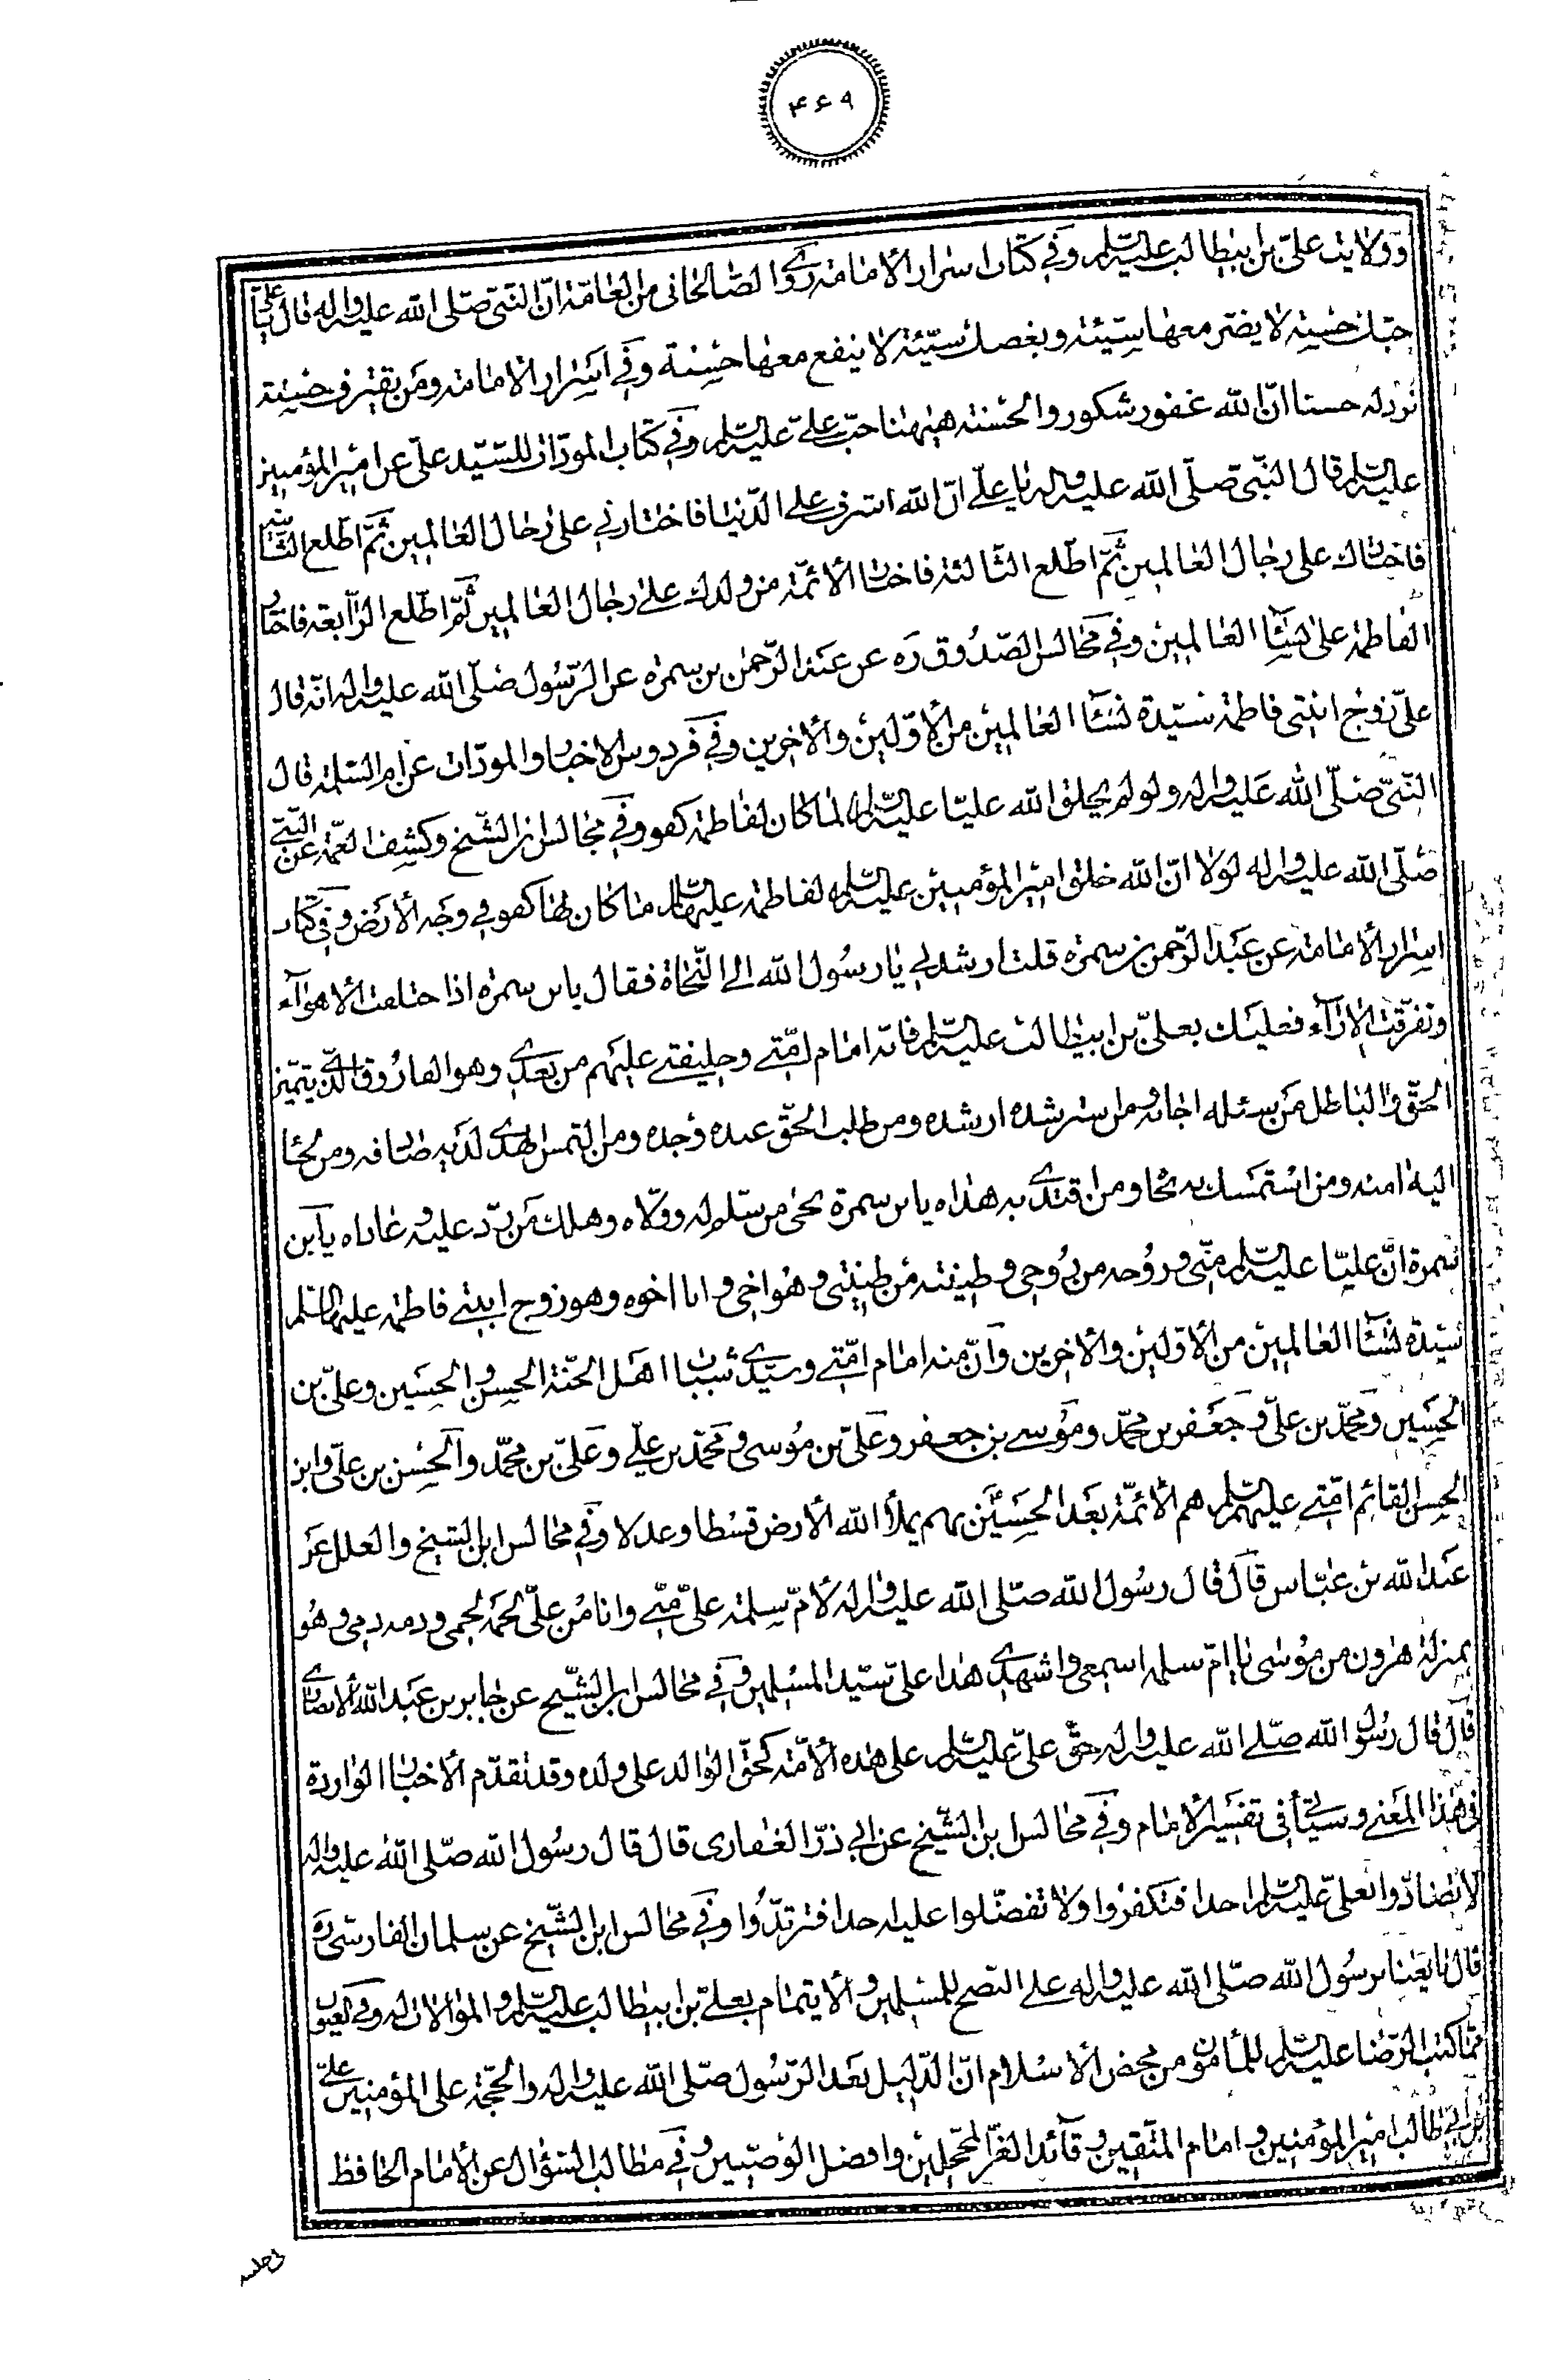 ۴۶۹
وولايت علىّ بن ابيطالب عليه السّلم وفي كتاب اسرار الأمامة روى الصّالحانى من العامّة انّ النّبى صلّى الله عليه واله قال يا علىّ
حبّك حسنة لا يضر معها سيّئة وبغضك سيّئة لا ينفع معها حسنة وفي اسرار الامامة ومن يقترف حسنة
نزد له حسنا انّ الله غفور شكور والحسنة هيهنا حبّ علىّ عليه السّلم وفي كتاب المودّات للسّيّد علىّ عن امير المؤمنين
عليه السّلم قال النّبىّ صلّى الله عليه واله يا علىّ انّ الله اشرف على الدّنيا فاختارنى على رجال العالمين ثمّ اطّلع الثّانية
فاختارك على رجال العالمين ثمّ اطّلع الثّالثة فاختار الأئمّة من ولدك على رجال العالمين ثمّ اطّلع الرّابعة فاختار
الفاطمة على نسآء العالمين وفي مجالس الصّدوق ره عن عبد الرّحمن بن سمرة عن الرّسول صلّى الله عليه واله انّه قال
علىّ زوج ابنتى فاطمة سيّدة نسآء العالمين من الأوّلين والأخرين وفي فردوس الاخبار والمودّات عن ام السّلمة قال
النّبىّ صلّى الله عليه واله ولو لم يخلق الله عليّا عليه السّلم لما كان لفاطمة كفو وفي مجالس ابن الشّيخ وكشف الغمّة عن النّبى
صلّى الله عليه واله لولا انّ الله خلق امير المؤمنين عليه السّلم لفاطمة عليها السّلم ما كان لها كفو في وجه الأرض وفي كتاب
اسرار الأمامة عن عبد الرّحمن بن سمرة قلت ارشدنى يا رسول الله الى النّجاة فقال يابن سمرة اذا ختلفت الأهوآء
وتفرّقت الاراء فعليك بعلىّ بن ابيطالب عليه السّلم فانّه امام امّتى وخليفتى عليهم من بعدى وهو الفاروق الّذى يتميّز
الحقّ والباطل من سئله اجابه ومن سترشده ارشده ومن طلب الحقّ عنده وجده ومن التمس الهدى لديه صادفه ومن لجأ
اليه امنه ومن استمسك به نجا ومن اقتدى به هداه يابن سمرة نجى من سلّم له وولّاه وهلك من ردّ عليه وعاداه يابن
سمرة انّ عليّا عليه السّلم منّى وروحه من روحى وطينته من طينتى وهو اخى وانا اخوه وهو زوج ابنتى فاطمة عليها السّلم
سيّدة نسآء العالمين من الأوّلين والأخرين وانّ منه امام امّتى وسيّدى شباب اهل الجنّة الحسن والحسين وعلىّ بن
الحسين ومحمّد بن علىّ وجعفر بن محمّد وموسى بن جعفر وعلىّ بن موسى ومحمّد بن علىّ وعلىّ بن محمّد والحسن بن علىّ وابن
الحسن القائم امّتى عليهم السّلم هم الأئمّة بعد الحسين بهم يملأ الله الأرض قسطا وعدلا وفي مجالس ابن الشيخ والعلل عن
عبد الله بن عبّاس قال قال رسول الله صلّى الله عليه واله لأمّ سلمة علىّ منّى وانا من علىّ لحمه لحمى ودمه دمى وهو
بمنزلة هرون من موسى يا امّ سلمه اسمعى واشهدى هذا على سيّد المسلمين وفي مجالس ابن الشّيخ عن جابر بن عبد الله الأنصارى
قال قال رسول الله صلّى الله عليه واله حقّ علىّ عليه السّلم على هذه الأمّة كحقّ الوالد على ولده وقد تقدّم الأخبار الواردة
فى هذا المعنى وسيأتى فى تفسير الأمام وفي مجالس ابن الشّيخ عن ابي ذرّ الغفارى قال قال رسول الله صلّى الله عليه واله
لا تضادّوا بعلىّ عليه السّلم احدا فتكفروا ولا تفضّلوا عليه احدا فترتدّوا وفي مجالس ابن الشّيخ عن سلمان الفارسىّ ره
قال بايعنا رسول الله صلّى الله عليه واله على النصح للمسلمين والأيتمام بعلىّ بن ابيطالب عليه السّلم والموالات له وفي العيون
ممّا كتب الرّضا عليه السّلم للمأمون من محض الأسلام انّ الدّليل بعد الرّسول صلّى الله عليه واله والحجّة على المؤمنين علىّ
بن ابي طالب امير المؤمنين وامام المتّقين وقآئد الغرّ المحجّلين وافضل الوصيّين وفي مطالب السّؤال عن الأمام الحافظ